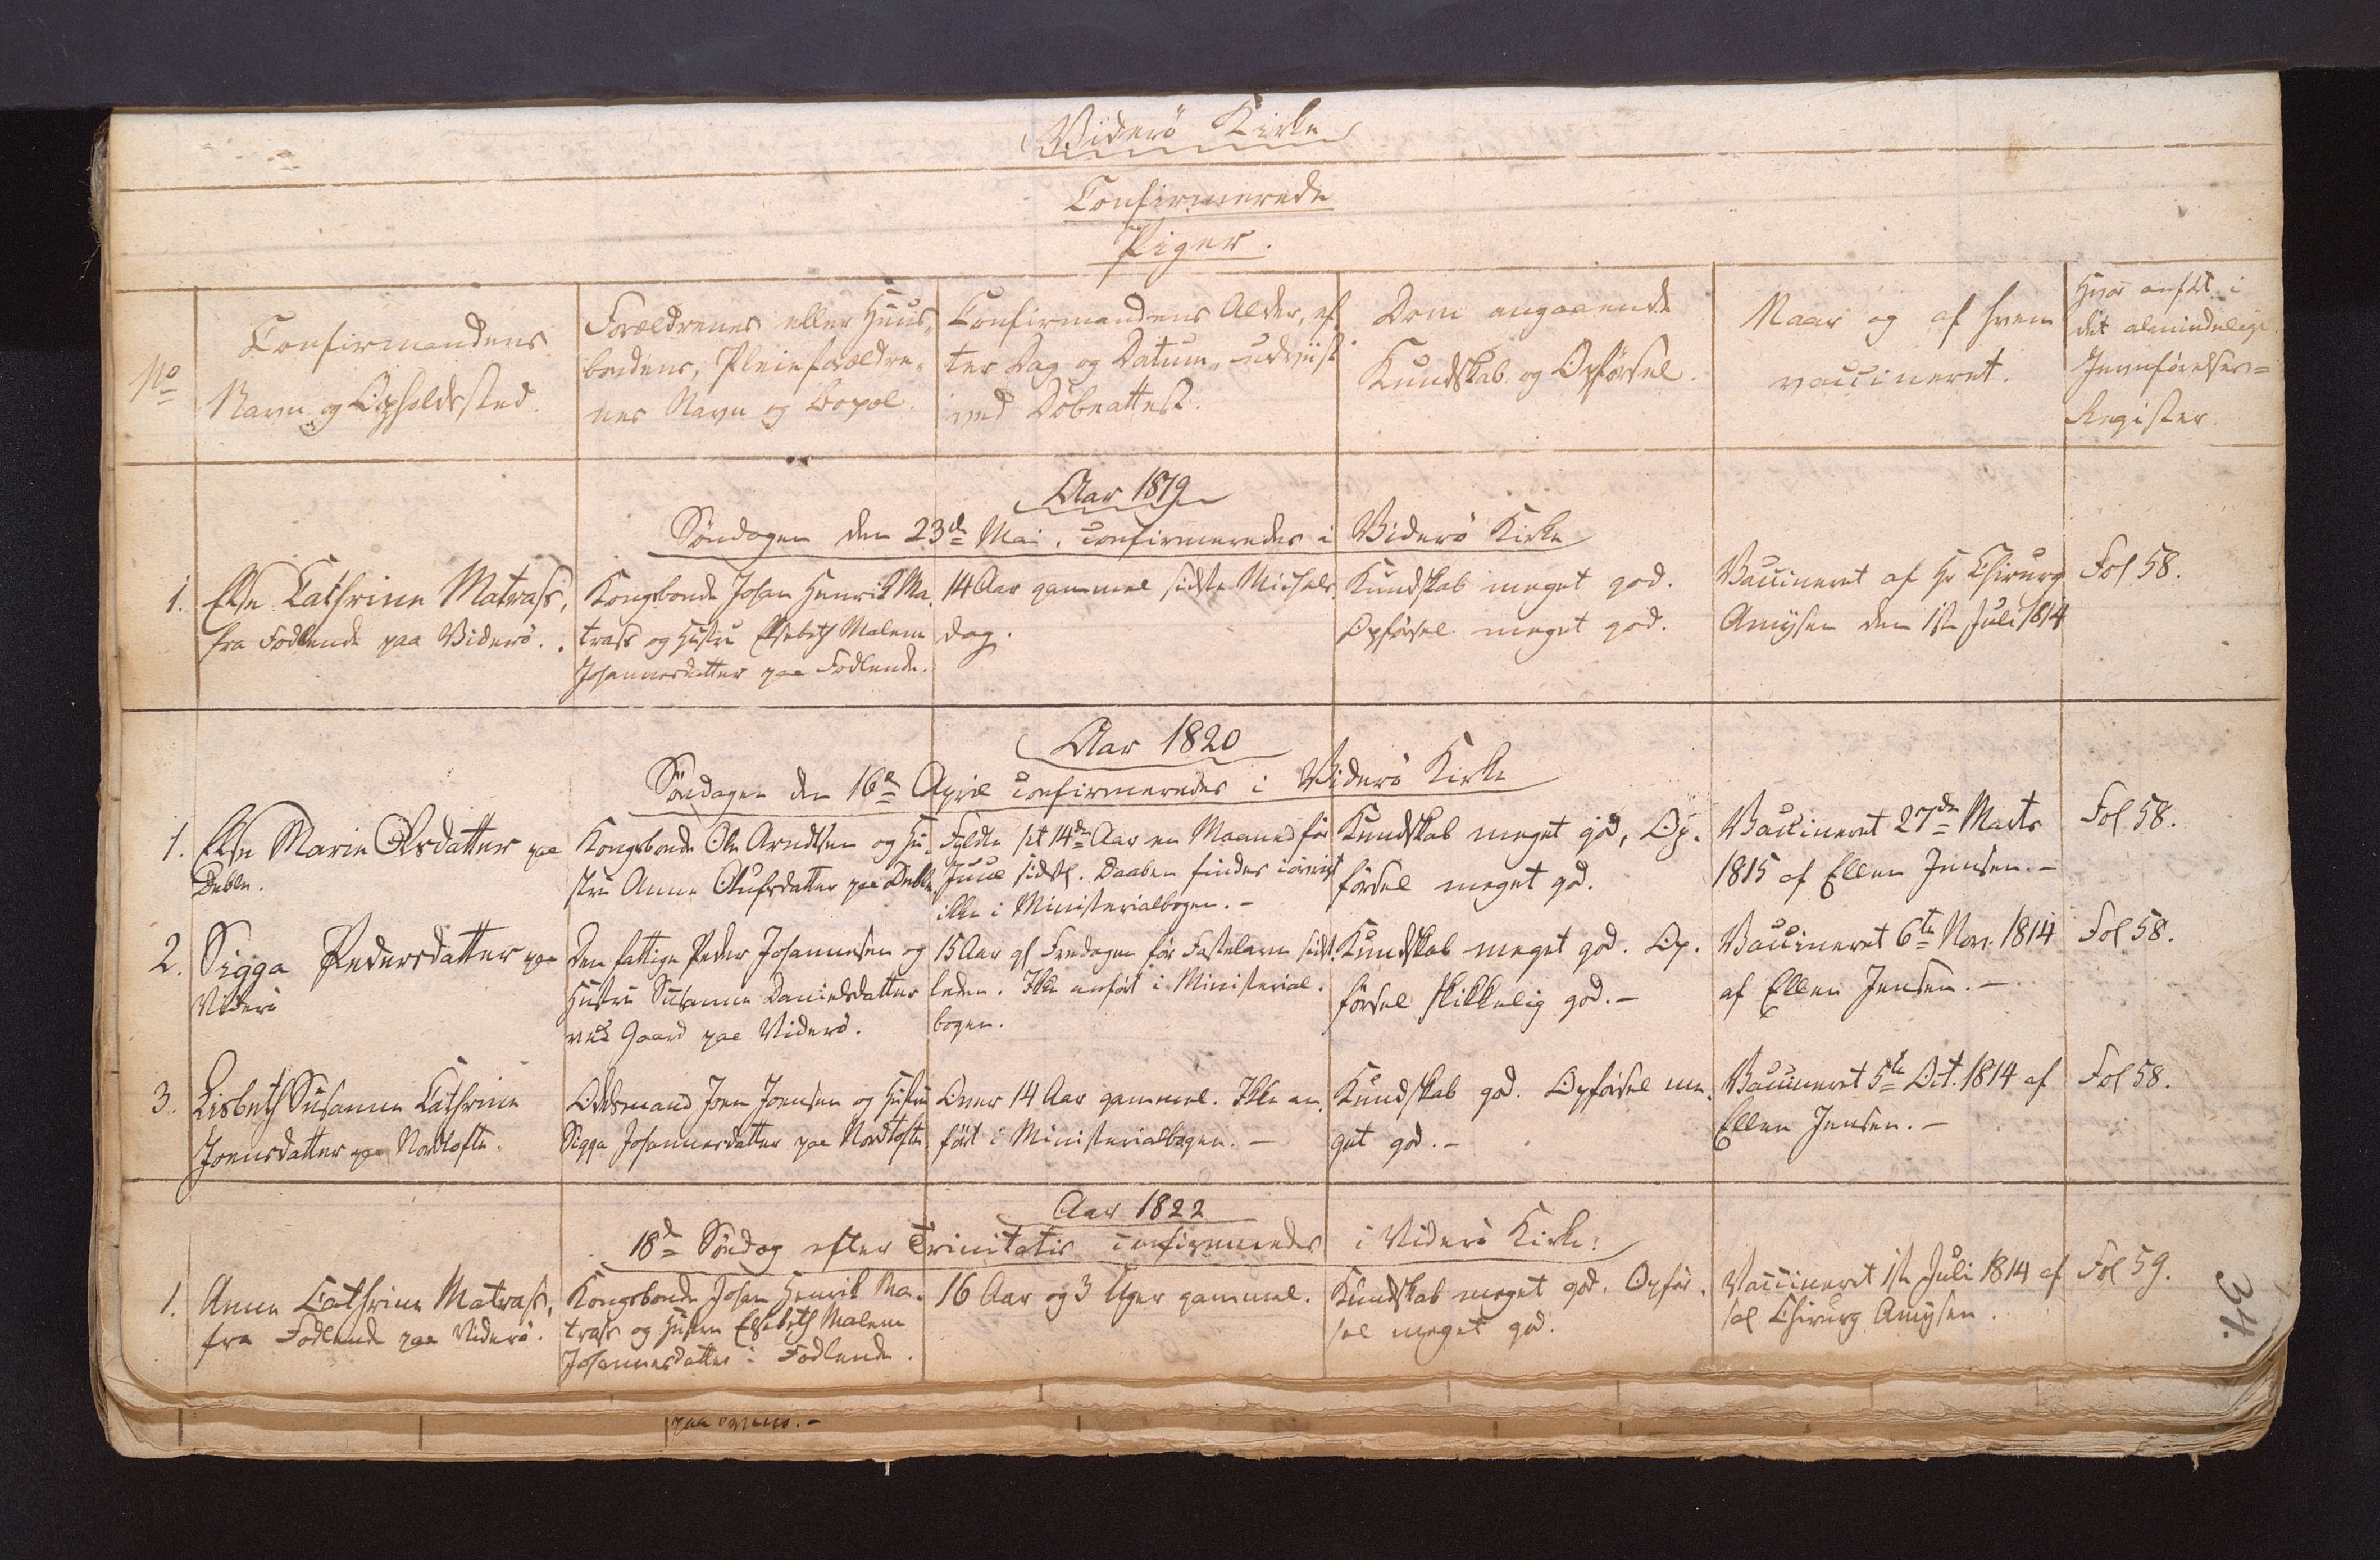 Viderö Kirke
Confirmerede
Piger.
No
Confirmandens
Navn og Opholdssted.
Forældrenes eller Huus-
bondens, Pleieforældre-
nes Navn og Bopæl.
Confirmandens Alder, ef-
ter Dag og Datum, udviist
ved Döbeattest.
Dom angaaende
Kundskab og Opförsel.
Naar og af hvem
vaccineret.
Hvor anfört i
det almindelige
Jevnförelses-
Register.
Aar 1819
Söndagen den 23de Mai, confirmeredes i Viderö Kirke
1.
Else Cathrine Matrass,
fra Fodlende paa Viderö.
Kongsbonde Johan Henrik Ma-
trass og Hustru Elsebeth Malene
Johannesdatter paa Fodlende.
14 Aar gammel sidste Michels
dag.
Kundskab meget god.
Opförsel meget god.
Vaccineret af Hr Chirurg
Amysen den 1ste Juli 1814
Fol 58.
Aar 1820
Söndagen den 16de April confirmeredes i Viderö Kirke
1.
Else Marie Olesdatter paa
Deble.
Kongsbonde Ole Arndtsen og Hu-
stru Anna Olufsdatter paa Deble.
Fyldte sit 14de Aar en Maaned för
Juul sidstl. Daaben findes
ikke i Ministerialbogen. -
Kundskab meget god, Op-
försel meget god.
Vaccineret 27de Marts
1815 af Ellen Jensen. -
Fol 58.
2.
Sigga Pedersdatter paa
Viderö
Den fattige Peder Johannesen og
Hustru Susanna Danielsdatter
ved Gaard paa Viderö.
15 Aar gl Fredagen för Fastelavn sidst-
leden. Ikke anfört i Ministerial-
bogen.
Kundskab meget god. Op-
försel skikkelig god. -
Vaccineret 6te Nov. 1814
af Ellen Jensen. -
Fol 58.
3.
Lisbeth Susanne Cathrine
Joensdatter paa Nordtofte.
Odelsmand Joen Joensen og Hustru
Sigga Johannesdatter paa Nordtofte.
Over 14 Aar gammel. Ikke an-
fört i Ministerialbogen. -
Kundskab god. Opförsel me-
get god. -
Vaccineret 5te Oct. 1814 af
Ellen Jensen. -
Fol 58.
Aar 1822
18de Söndag efter Trinitatis confirmeredes i Viderö Kirke:
1.
Anne Cathrine Matrass,
fra Fodlende paa Viderö.
Kongsbonde Johan Henrik Ma-
trass og Hustru Elsebeth Malene
Johannesdatter i Fodlende.
16 Aar og 3 Uger gammel.
Kundskab meget god. Opför-
sel meget god.
Vaccineret 1ste Juli 1814 af
sal Chirurg Amysen.
Fol 59.
34.